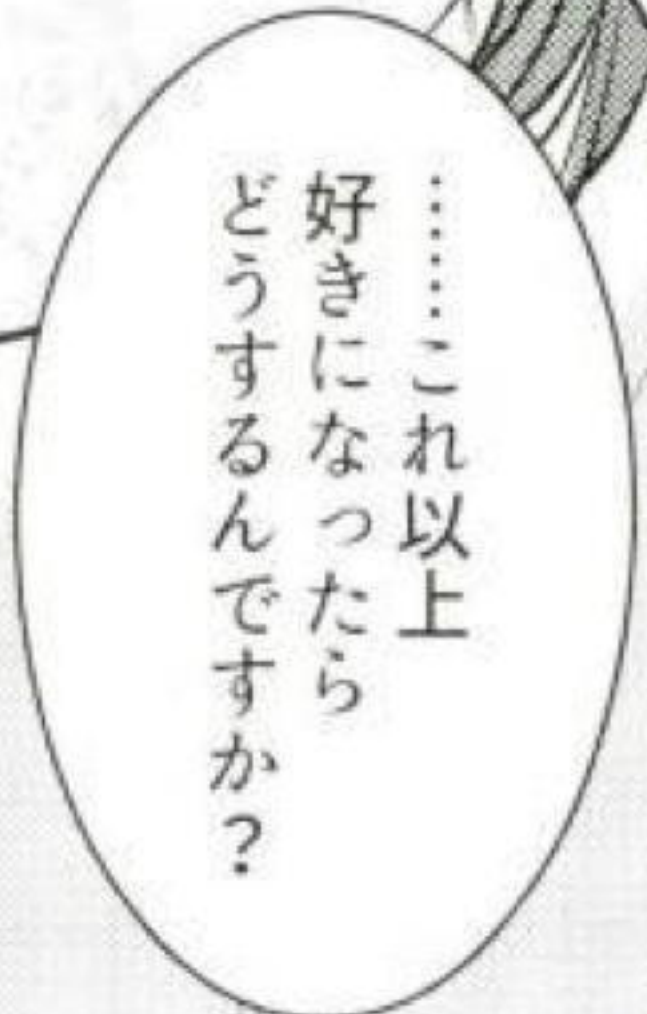 ……これ以上
好きになったら
どうするんですか？